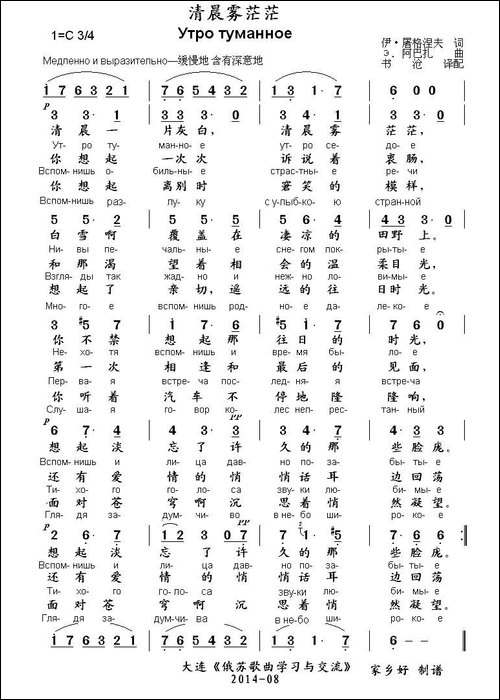 清晨雾茫茫
Утро туманное
1=C 3/4
伊·屠格涅夫 词
Э. 阿巴扎 曲
书 沧 译配
Медленно и выразительно—缓慢地 含有深意地
1 7 6 3 2 1 | 7 6 5 4 3 2 | 1 3 1 · 7 | 6 0 0
p
3 3 · 1 | 3 3 · 0 | 3 4 · 1 | 3 3 · 0
清 晨 一 片灰白, 清 晨 雾 茫 茫,
Ут- ро ту- ман-но- е ут- ро се- до- е
你 想 起 一 次 次 诉 说 着 衷 肠,
Вспом-нишь о- биль-ны- е страст-ны- е ре- чи
你 想 起 离 别 时 窘 笑 的 模 样,
Вспом-нишь раз- лу- ку с у-лыб-кою странной
5 5 · 2 | 5 5 · 0 | 5 6 · 4 | 4 3 3 · 0
白 雪 啊 覆 盖 在 凄 凉 的 田野 上。
Ни- вы пе- чаль-ны- е сне-гом пок- ры-ты- е
和 那 渴 望 着 相 会 的 温 柔目 光,
Взгля- ды так жад-но и неж-но ло- ви-мы-е
想 起 了 亲 切, 遥 远 的 往 日时 光。
Мно-го- е вспом-нишь род- но-е да- ле-ко- е
3 #5 7 | 1 7 · 6 | #5 1 · 7 | 7 6 0
你 不 禁 想 起 那 往 日 的 时 光,
Не- хо-тя вспом-нишь и вре-мя бы- ло- е
第 一 次 相 逢 和 最 后 的 见 面,
Пер- ва-я встре-ча пос- лед-ня-я встре-ча
你 听 着 汽 车 不 停 地 隆 隆 响,
Слу- ша-я го-вор ко- лес неп-рес- тан-ный
p
6 7 · 4 | 2 4 3 | 3 4 · 7 | 2 1 · 0
想 起 淡 忘 了 许 久 的 那 些 脸 庞。
Вспом-нишь и ли-ца дав- но по-за- бы-ты- е
还 有 爱 情 的 悄 悄 话 耳 边 回 荡
Ти-хо-го го-ло-са зву-ки лю- би-мо- е
面 对 苍 穹 啊 沉 思 着 悄 然 凝 望。
Гля- дя за- дум-чи-во в не-бо ши- ро-ко- е
p pp
2 6 · 7 | 1 2 3 0 7 | 7 1 · #5 | 7 6 · 0
想 起 淡 忘 了 许 久 的 那 些 脸 庞。
Вспом-нишь и ли-ца дав- но по-за- бы-ты- е
还 有 爱 情 的 悄 悄 话 耳 边 回 荡
Ти-хо-го го-ло-са зву-ки лю- би-мо- е
面 对 苍 穹 啊 沉 思 着 悄 然 凝 望。
Гля- дя задум- чи-во в не-бо ши- ро-ко- е
1 7 6 3 2 1 | 7 6 5 4 3 2 | 1 3 1 · 7 | 6 – –
大连《俄苏歌曲学习与交流》 家乡好 制谱
2014-08